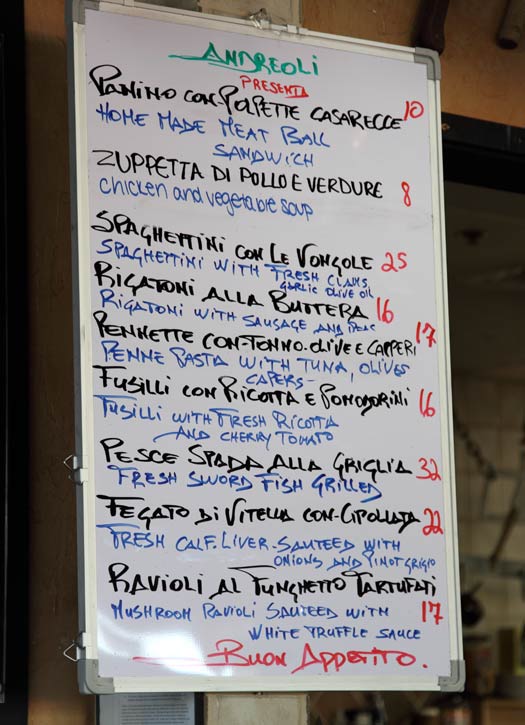 ANDREOLI
PRESENTA
PANINO CON POLPETTE CASARECCE 10
HOME MADE MEAT BALL
SANDWICH
ZUPPETTA DI POLLO E VERDURE 8
chicken and vegetable soup
SPAGHETTINI CON LE VONGOLE 25
SPAGHETTINI WITH FRESH CLAMS
GARLIC OLIVE OIL
RIGATONI ALLA BUTTERA 16
RIGATONI WITH SAUSAGE AND PEAS
PENNETTE CON-TONNO-OLIVE E CAPPERI 17
PENNE PASTA WITH TUNA, OLIVES
CAPERS-
FUSILLI CON RICOTTA E POMODORINI 16
FUSILLI WITH FRESH RICOTTA
AND CHERRY TOMATO
PESCE SPADA ALLA GRIGLIA 32
FRESH SWORD FISH GRILLED
FEGATO DI VITELLA CON-CIPOLLATA 22
FRESH CALF. LIVER-SAUTEED WITH
ONIONS AND PINOT GRIGIO
RAVIOLI AL FUNGHETTO TARTUFATI
MUSHROOM RAVIOLI SAUTEED WITH 17
WHITE TRUFFLE SAUCE
BUON APPETITO.